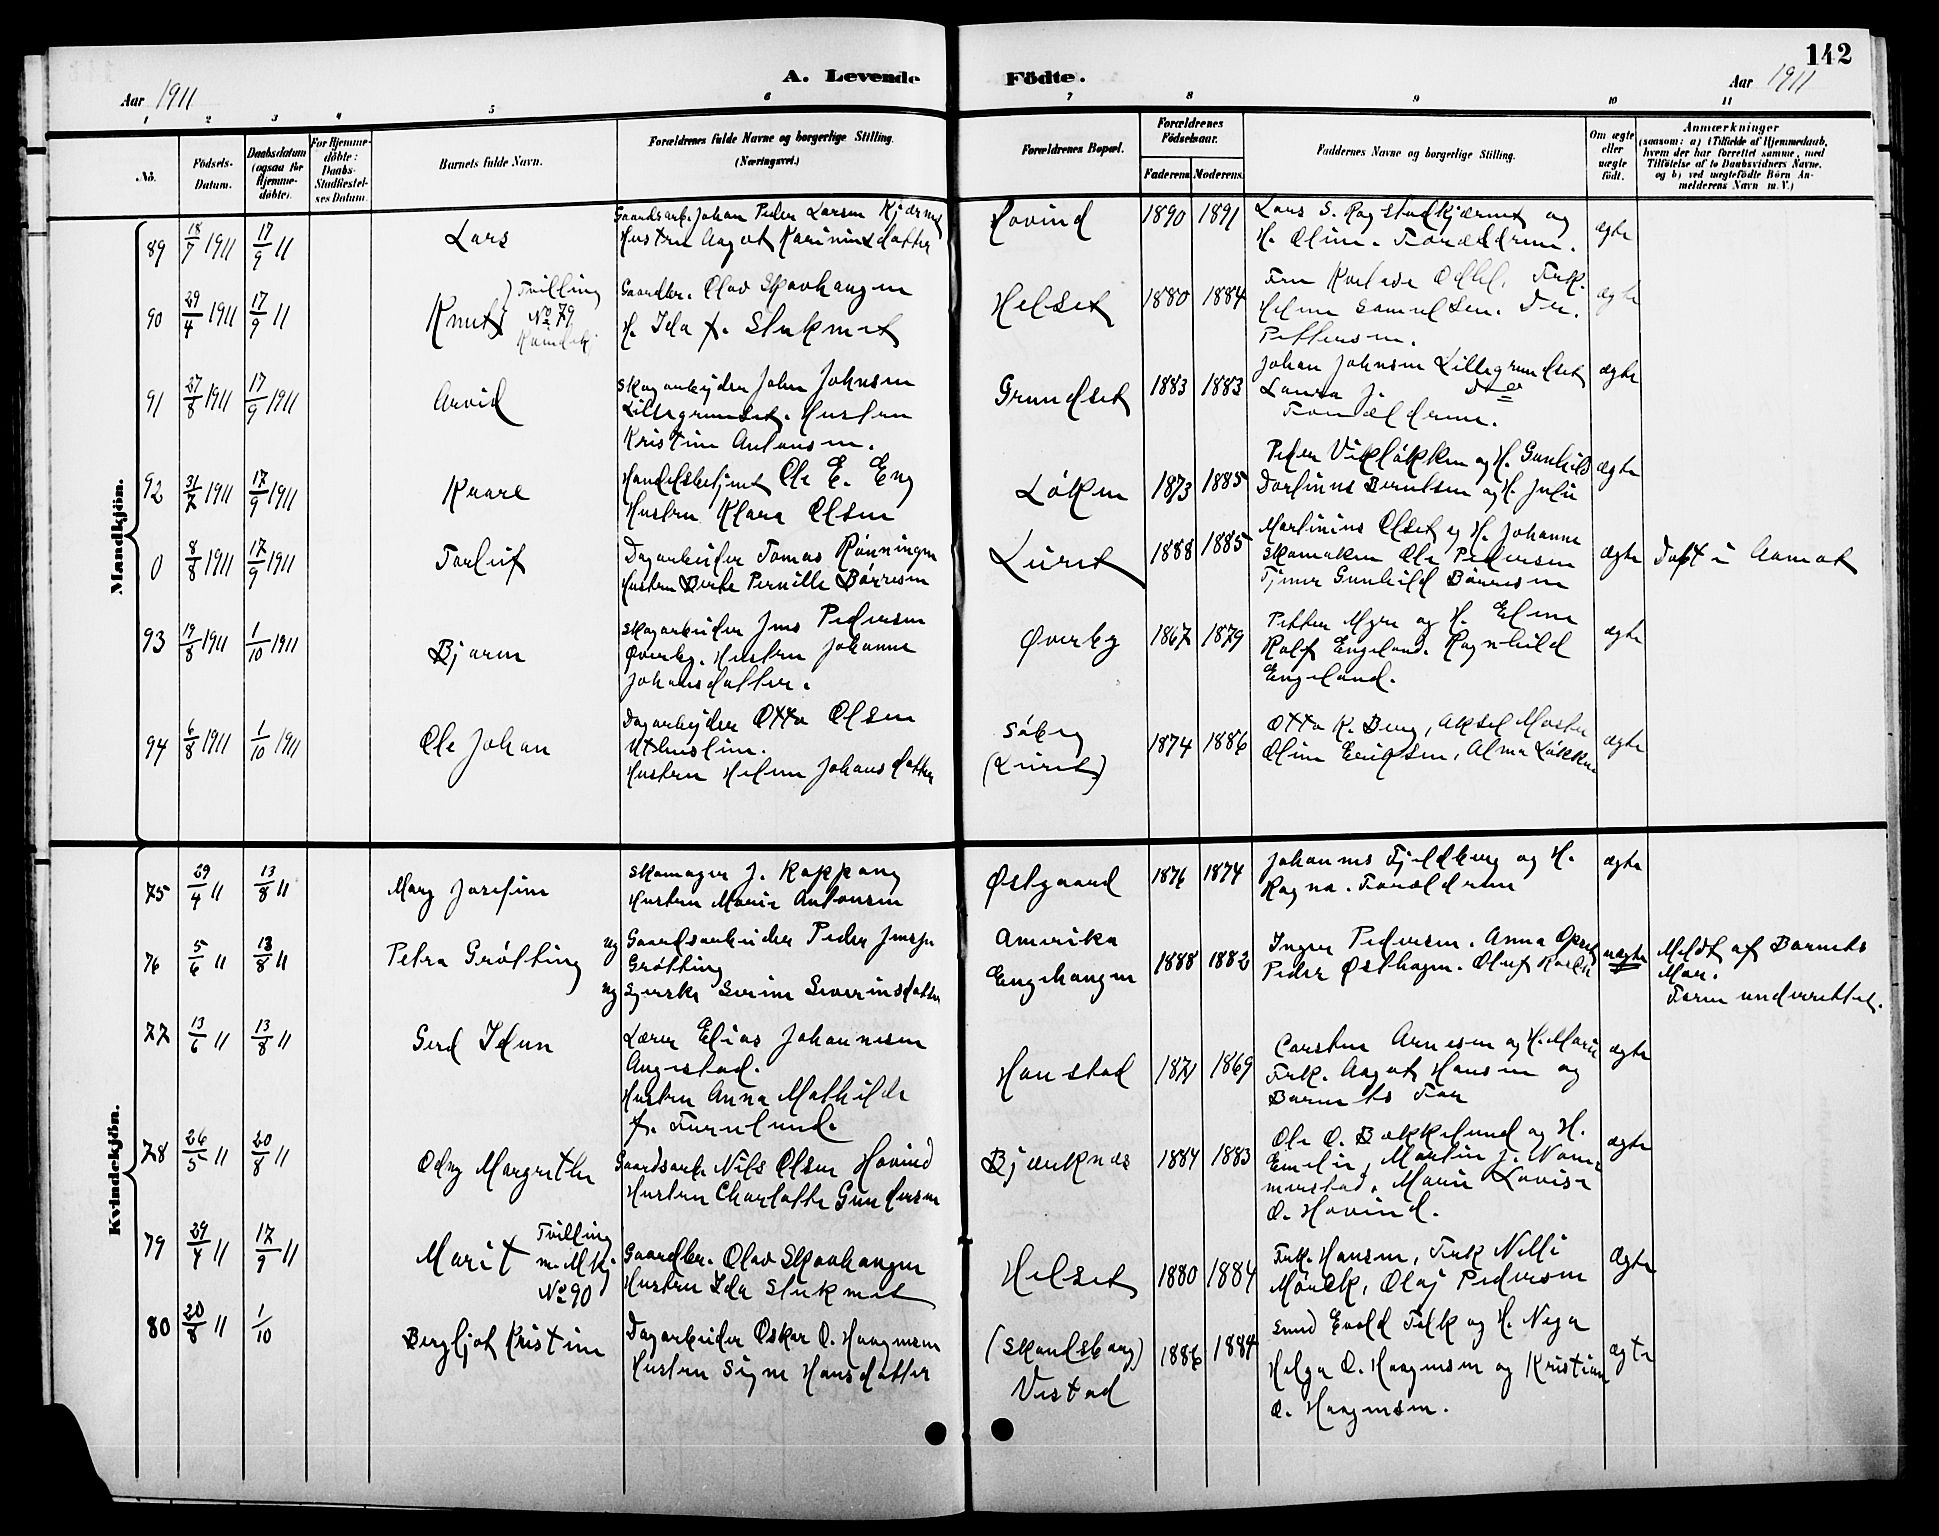 142
A. Levende Födte.
Aar 1911
Aar 1911
1 2 3 4 5 6 7 8 9 10 11
No.
Födsels-Datum.
Daabsdatum (ogsaa for Hjemme-döbte).
For Hjemme-döbte: Daabs-Stadfæstel-ses Datum.
Barnets fulde Navn.
Forældrenes fulde Navne og borgerlige Stilling.
(Næringsvei.)
Forældrenes Bopæl.
Forældrenes Födselsaar.
Faderens Moderens
Faddernes Navne og borgerlige Stilling.
Om ægte eller uægte födt.
Anmærkninger
(saasom: a) i Tilfælde af Hjemmedaab, hvem der har forrettet samme, med Tilföielse af to Daabsvidners Navne, og b) ved uægtefödte Börn An-melderens Navn m. V.)
Mandkjön.
89 18/7 1911 17/9 11 Lars
Gaardsarb. Johan Peder Larsen Kjernet
Hustru Aagot Karinusdatter
Hovind 1890 1891
Lars S. Ragstadkjærnet og
H. Oline. Forældrene.
ægte
90 29/4 1911 17/9 11 Knut
Tvilling
No 79
Kvindekj
Gaardbr. Olav Skovhaugen
H. Ida f. Slukmet
Helset 1880 1884
Helene Samuelsen.
Pettersen.
ægte
91 27/8 1911 17/9 1911 Arvid
Skogarbeyder John Johnsen
Lillegrundset. Hustru
Kristine Antonsen.
Grundset 1883 1883
Johan Johnsen Lillegrundset
Laura J. do
Forældrene.
ægte
92 31/7 1911 17/9 1911 Kaare
Handelsbetjent Ole E. Eng
Hustru Klara Olsen
Løken 1873 1885
Peder Vikløkken og H. Gunhild
Dorfinus Berntsen og H. Julie
ægte
0 8/8 1911 17/9 1911 Torleif
Dagarbeider Tomas Rønningen
Hustru Berte Pernille Børresen
Luret 1888 1885
Martinius Olset og H. Johanne
Skomaker Ole Pedersen
Tjener Gunhild Børresen
ægte
Døpt i Aamot
93 19/8 1911 1/10 1911 Bjarne
Skogarbeider Jens Pedersen
Øverby. Hustru Johanne
Johansdatter.
Øverby 1867 1879
Petter Myre og H. Eline
Rolf Engeland. Ragnhild
Engeland.
ægte
94 6/8 1911 1/10 1911 Ole Johan
Dagarbeyder Otto Olsen
Uthuslien.
Hustru Helene Johansdatter
Søby
(Luret)
1874 1886
Otto K. Berg, Aksel Moster
Oline Eriksen, Alma Løkken
ægte
Kvindekjön.
75 29/4 11 13/8 11 Mary Josefine
Skomager J. Koppang
Hustru Marie Antonsen
Østgaard 1876 1874
Johannes Fjeldberg og H.
Ragna. Forældrene
ægte
76 5/6 11 13/8 11 Petra Grøtting
ug Gaardsarbeider Peder Jensen
Grøtting
ug Syerske Serine Severinsdatter
Amerika
Engehaugen
1888 1882
Inger Pedersen. Anna
Peder Østhagen. Oluf
uægte
Meldt af Barnets
Mor.
Faren underrettet.
77 13/6 11 13/8 11 Gerd Idun
Lærer Elias Johannesen
Angestad.
Hustru Anna Mathilde
f. Furulund.
Hanstad 1871 1869
Carsten Arnesen og H. Marie
Frk. Aagot Hansen og
Barnets Far
ægte
78 26/5 11 20/8 11 Odny Margrethe
Gaardsarb. Nils Olsen Hovind
Hustru Charlotte Gundersen
Bjærknes 1884 1883
Ole O. Bækkelund og H.
Emelie, Martin J. Nom-
merstad, Marie Lovise
O. Hovind.
ægte
79 29/4 11 17/9 11 Marit
Tvilling
m. Mkj
No 90
Gaardbr. Olav Skovhaugen
Hustru Ida Slukmet
Helset 1880 1884
Frk. Hansen, Frk Nelli
Mørck, Olaf Pedersen
Ægte
80 20/8 11 1/10 Bergljot Kristine
Dagarbeider Oskar O. Haagensen
Hustru Signe Hansdatter
(Skaulsberg)
Vestad
1886 1884
Smed Evald Falk og H. Nega
Helga O. Haagensen og Kristian
O. Haagensen.
ægte